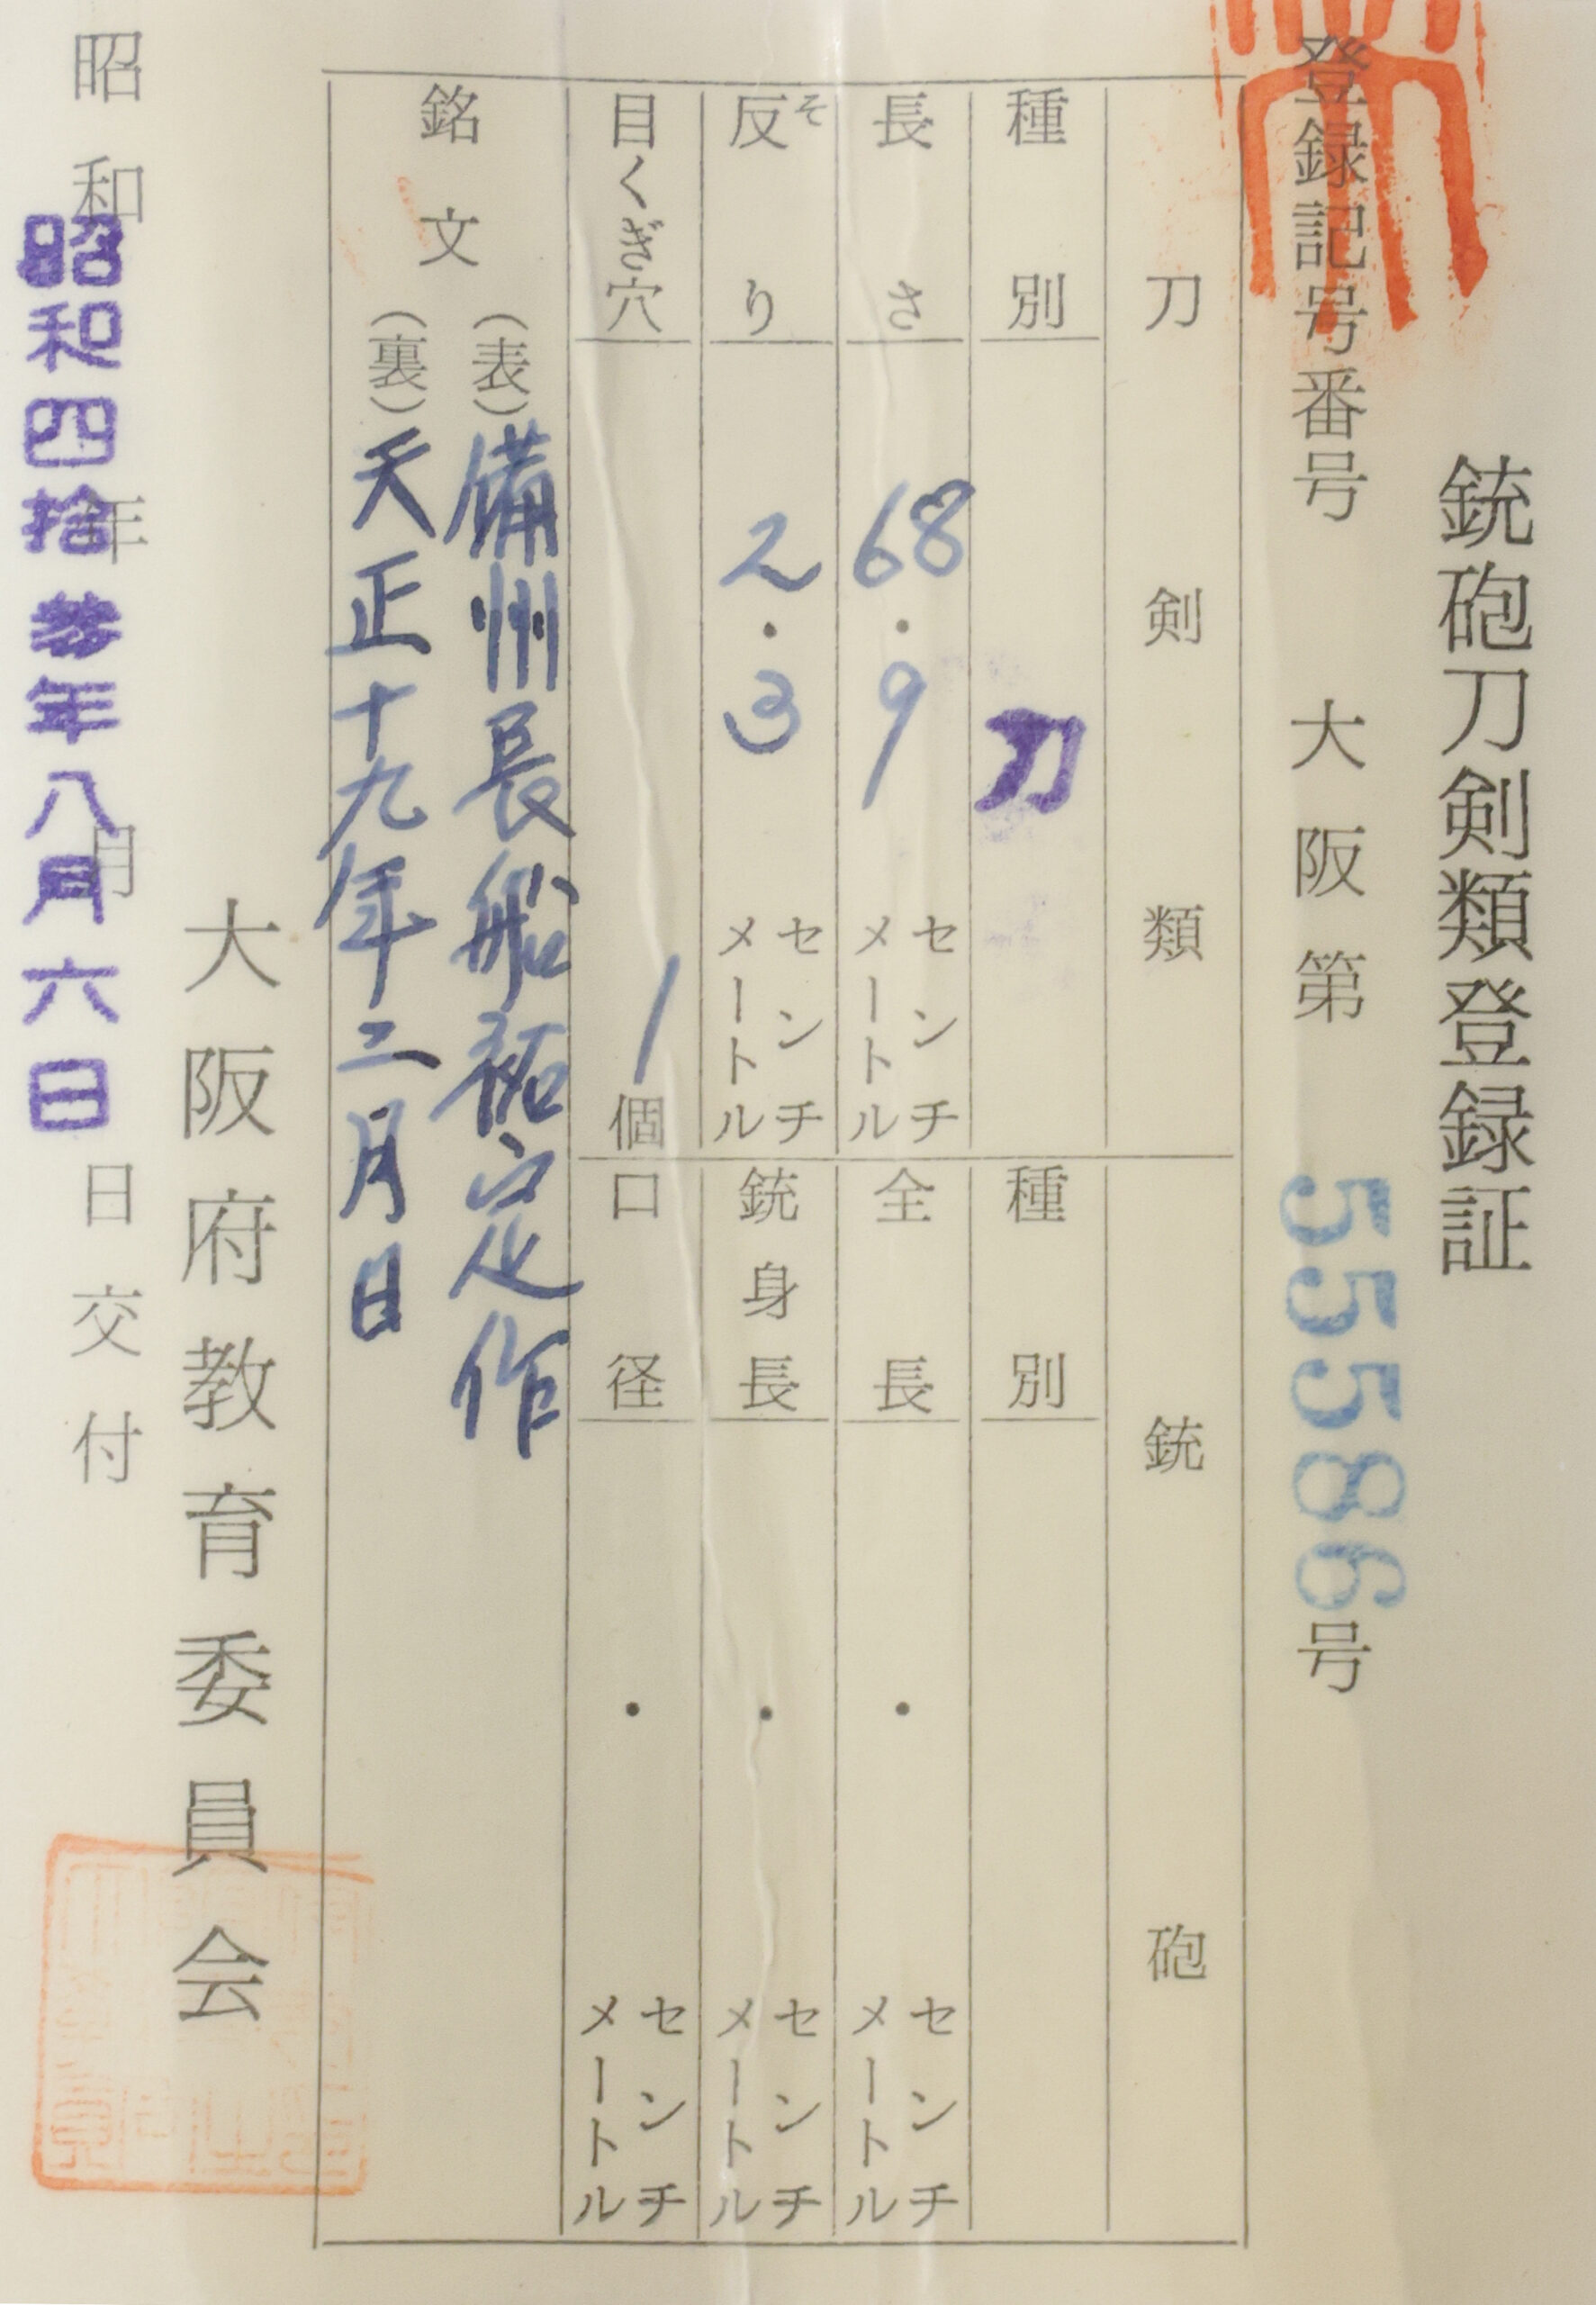 銃砲刀剣類登録証
登録記号番号 大阪第 55586号
刀剣類
種別 刀
長さ 68.9 センチメートル
反り そ 2.3 センチメートル
目くぎ穴 1個
銘文
(表)備州長船祐定作
(裏)天正十九年二月日
銃砲
種別
全長 ・ センチメートル
銃身長 ・ センチメートル
口径 ・ センチメートル
大阪府教育委員会
昭和 年 月 日交付
昭和四拾参年八月六日